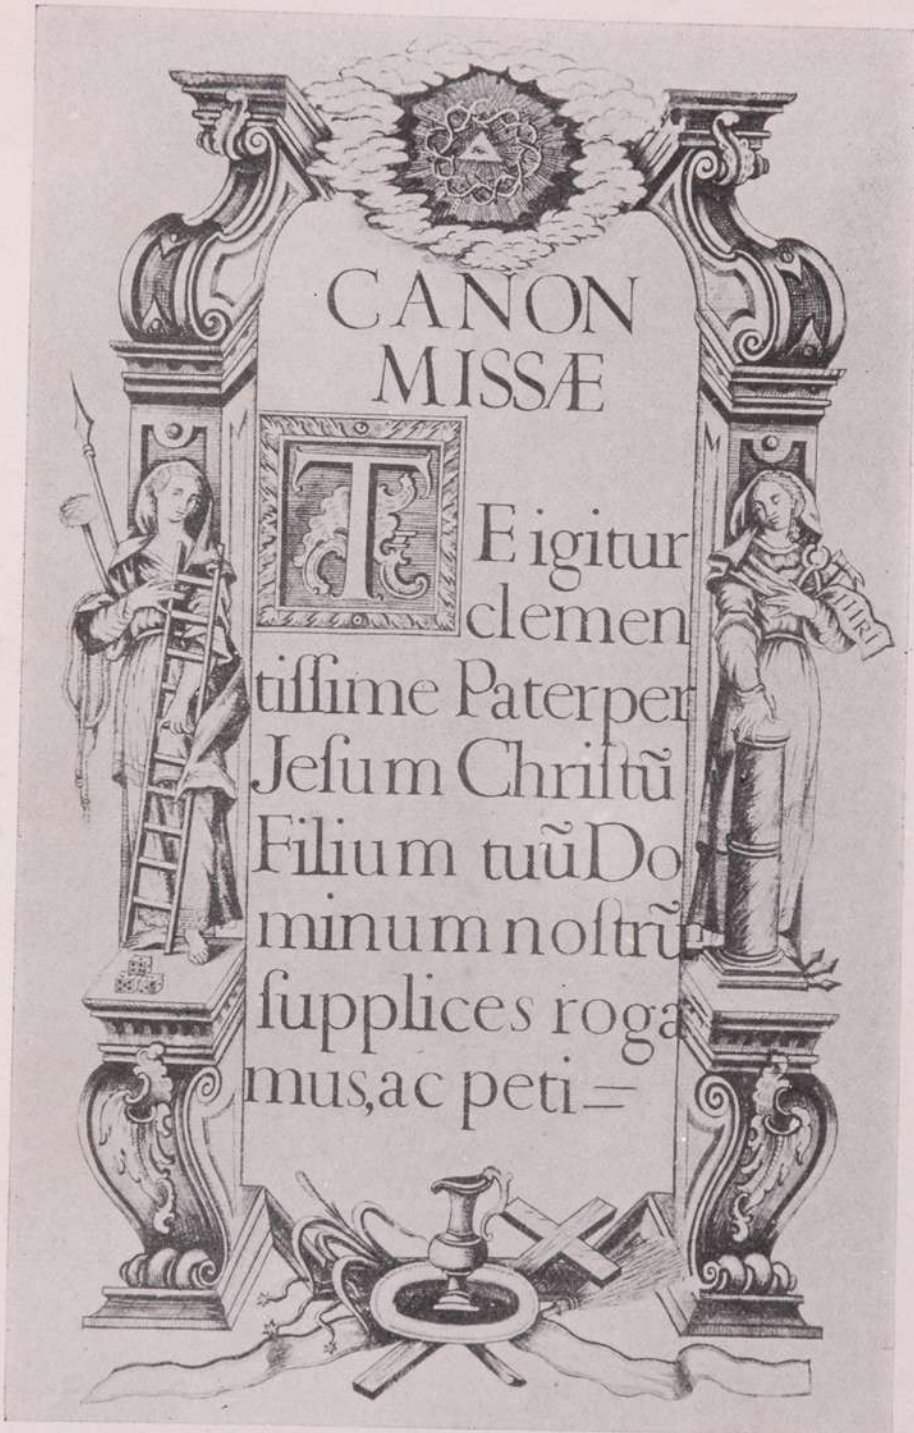 CANON
MISSÆ
TE igitur
clemen
tiſſime Pater per
Jeſum Chriſtū
Filium tuū Do
minum noſtrū
ſupplices roga
mus, ac peti=
INRI